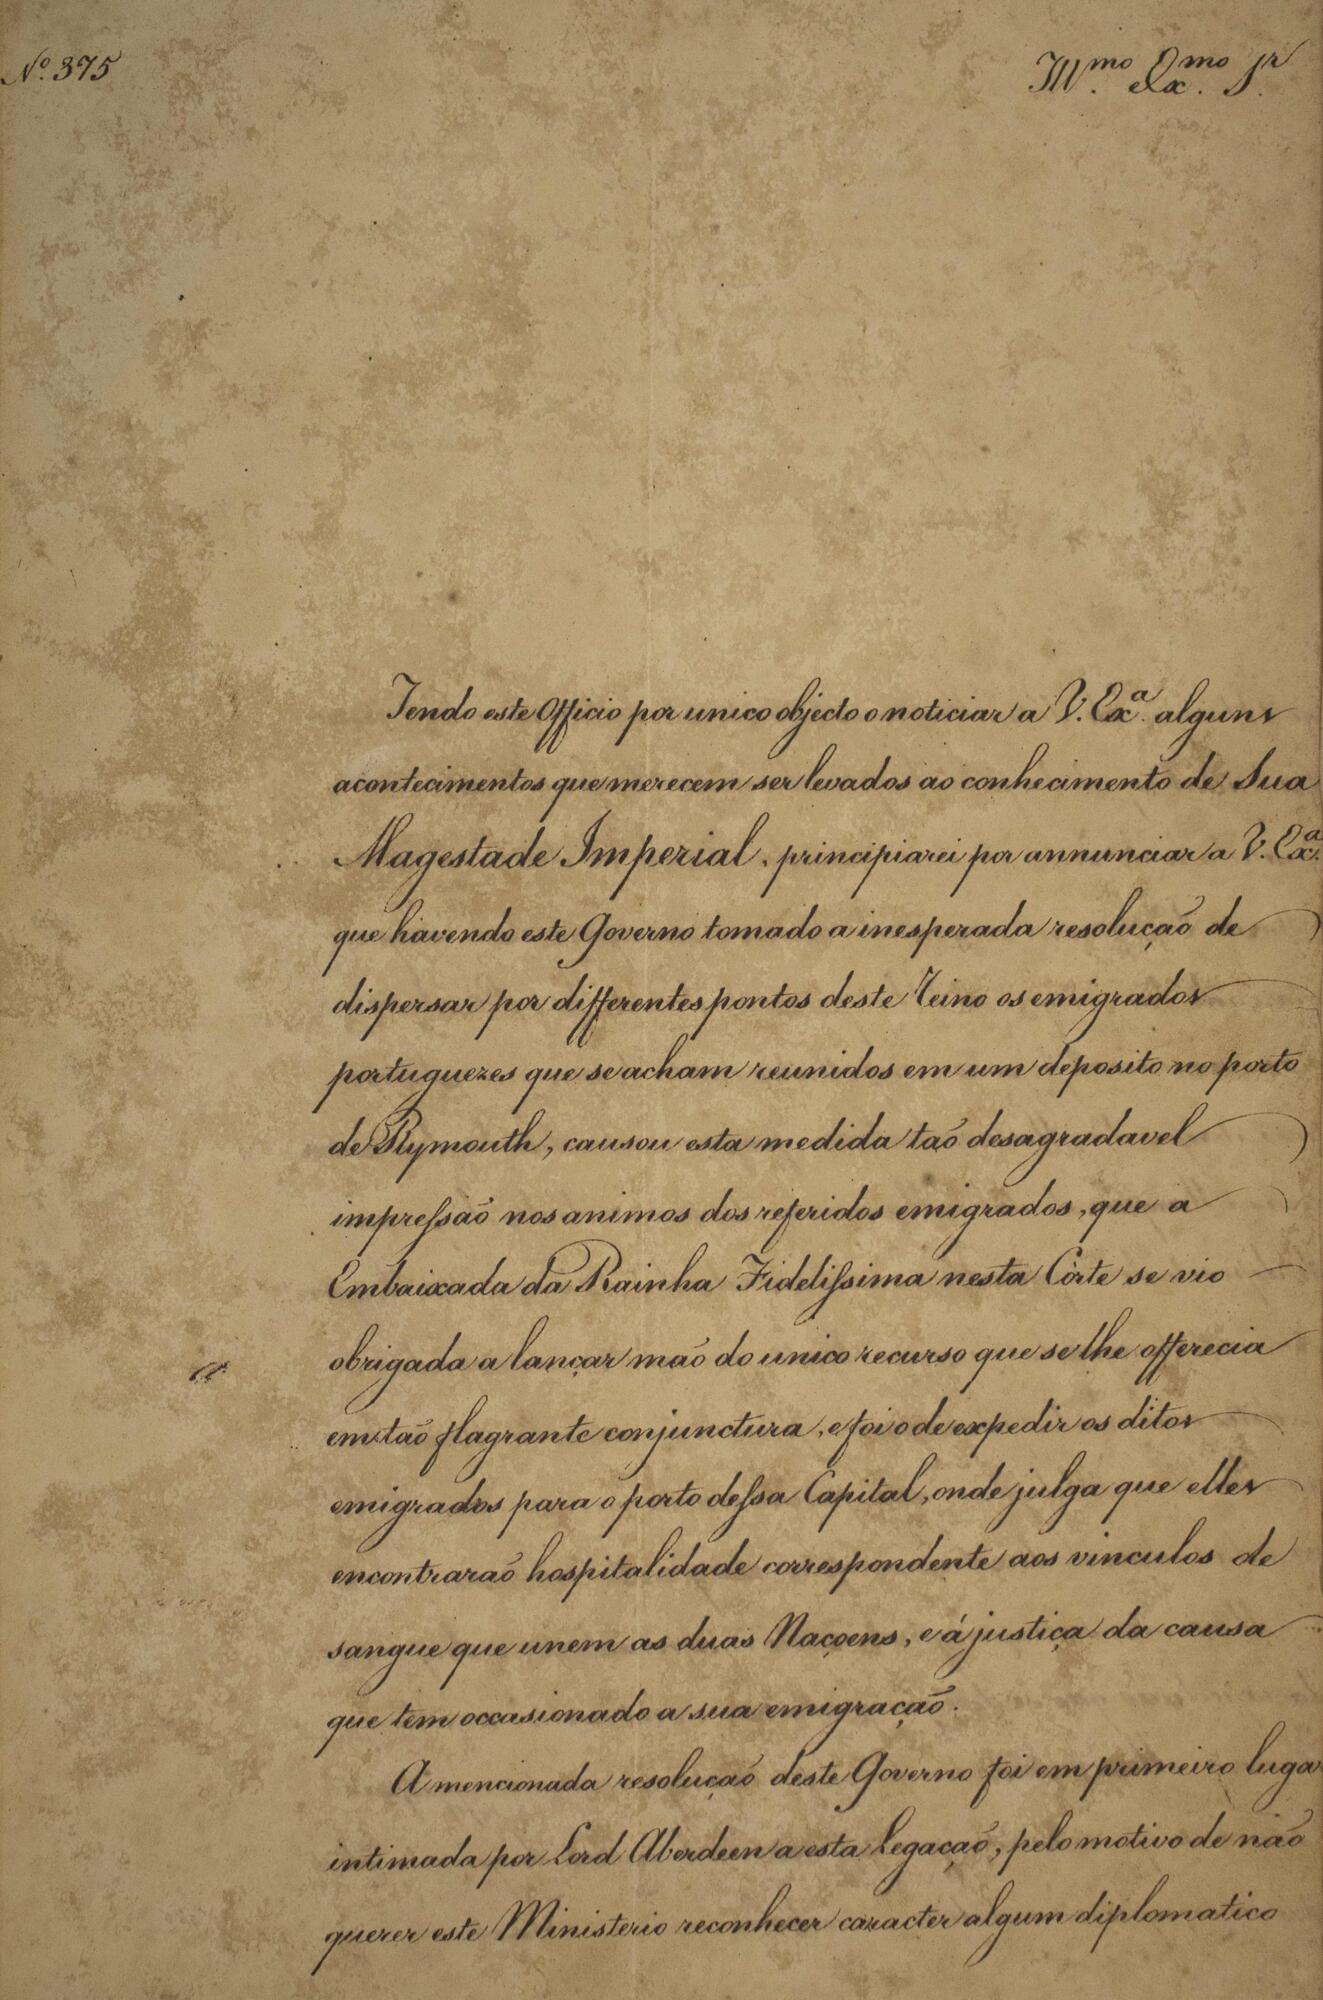 Nº. 375
Illmo. Exmo. Sr.
Tendo este Officio por unico objecto o noticiar a V. Exª. alguns
acontecimentos que merecem ser levados ao conhecimento de Sua
Magestade Imperial, principiarei por annunciar a V. Exª.
que havendo este Governo tomado a inesperada resolução de
dispersar por differentes pontos deste Reino os emigrados
portuguezes que se acham reunidos em um deposito no porto
de Plymouth, causou esta medida tão desagradavel
impressão nos animos dos referidos emigrados, que a
Embaixada da Rainha Fidelissima nesta Côrte se vio
obrigada a lançar mão do unico recurso que se lhe offerecia
em tão flagrante conjunctura, e foi o de expedir os ditos
emigrados para o porto dessa Capital, onde julga que elles
encontrarão hospitalidade correspondente aos vinculos de
sangue que unem as duas Naçoens, e á justiça da causa
que tem occasionado a sua emigração.
A mencionada resolução deste Governo foi em primeiro lugar
intimada por Lord Aberdeen a esta Legação, pelo motivo de não
querer este Ministerio reconhecer caracter algum diplomatico